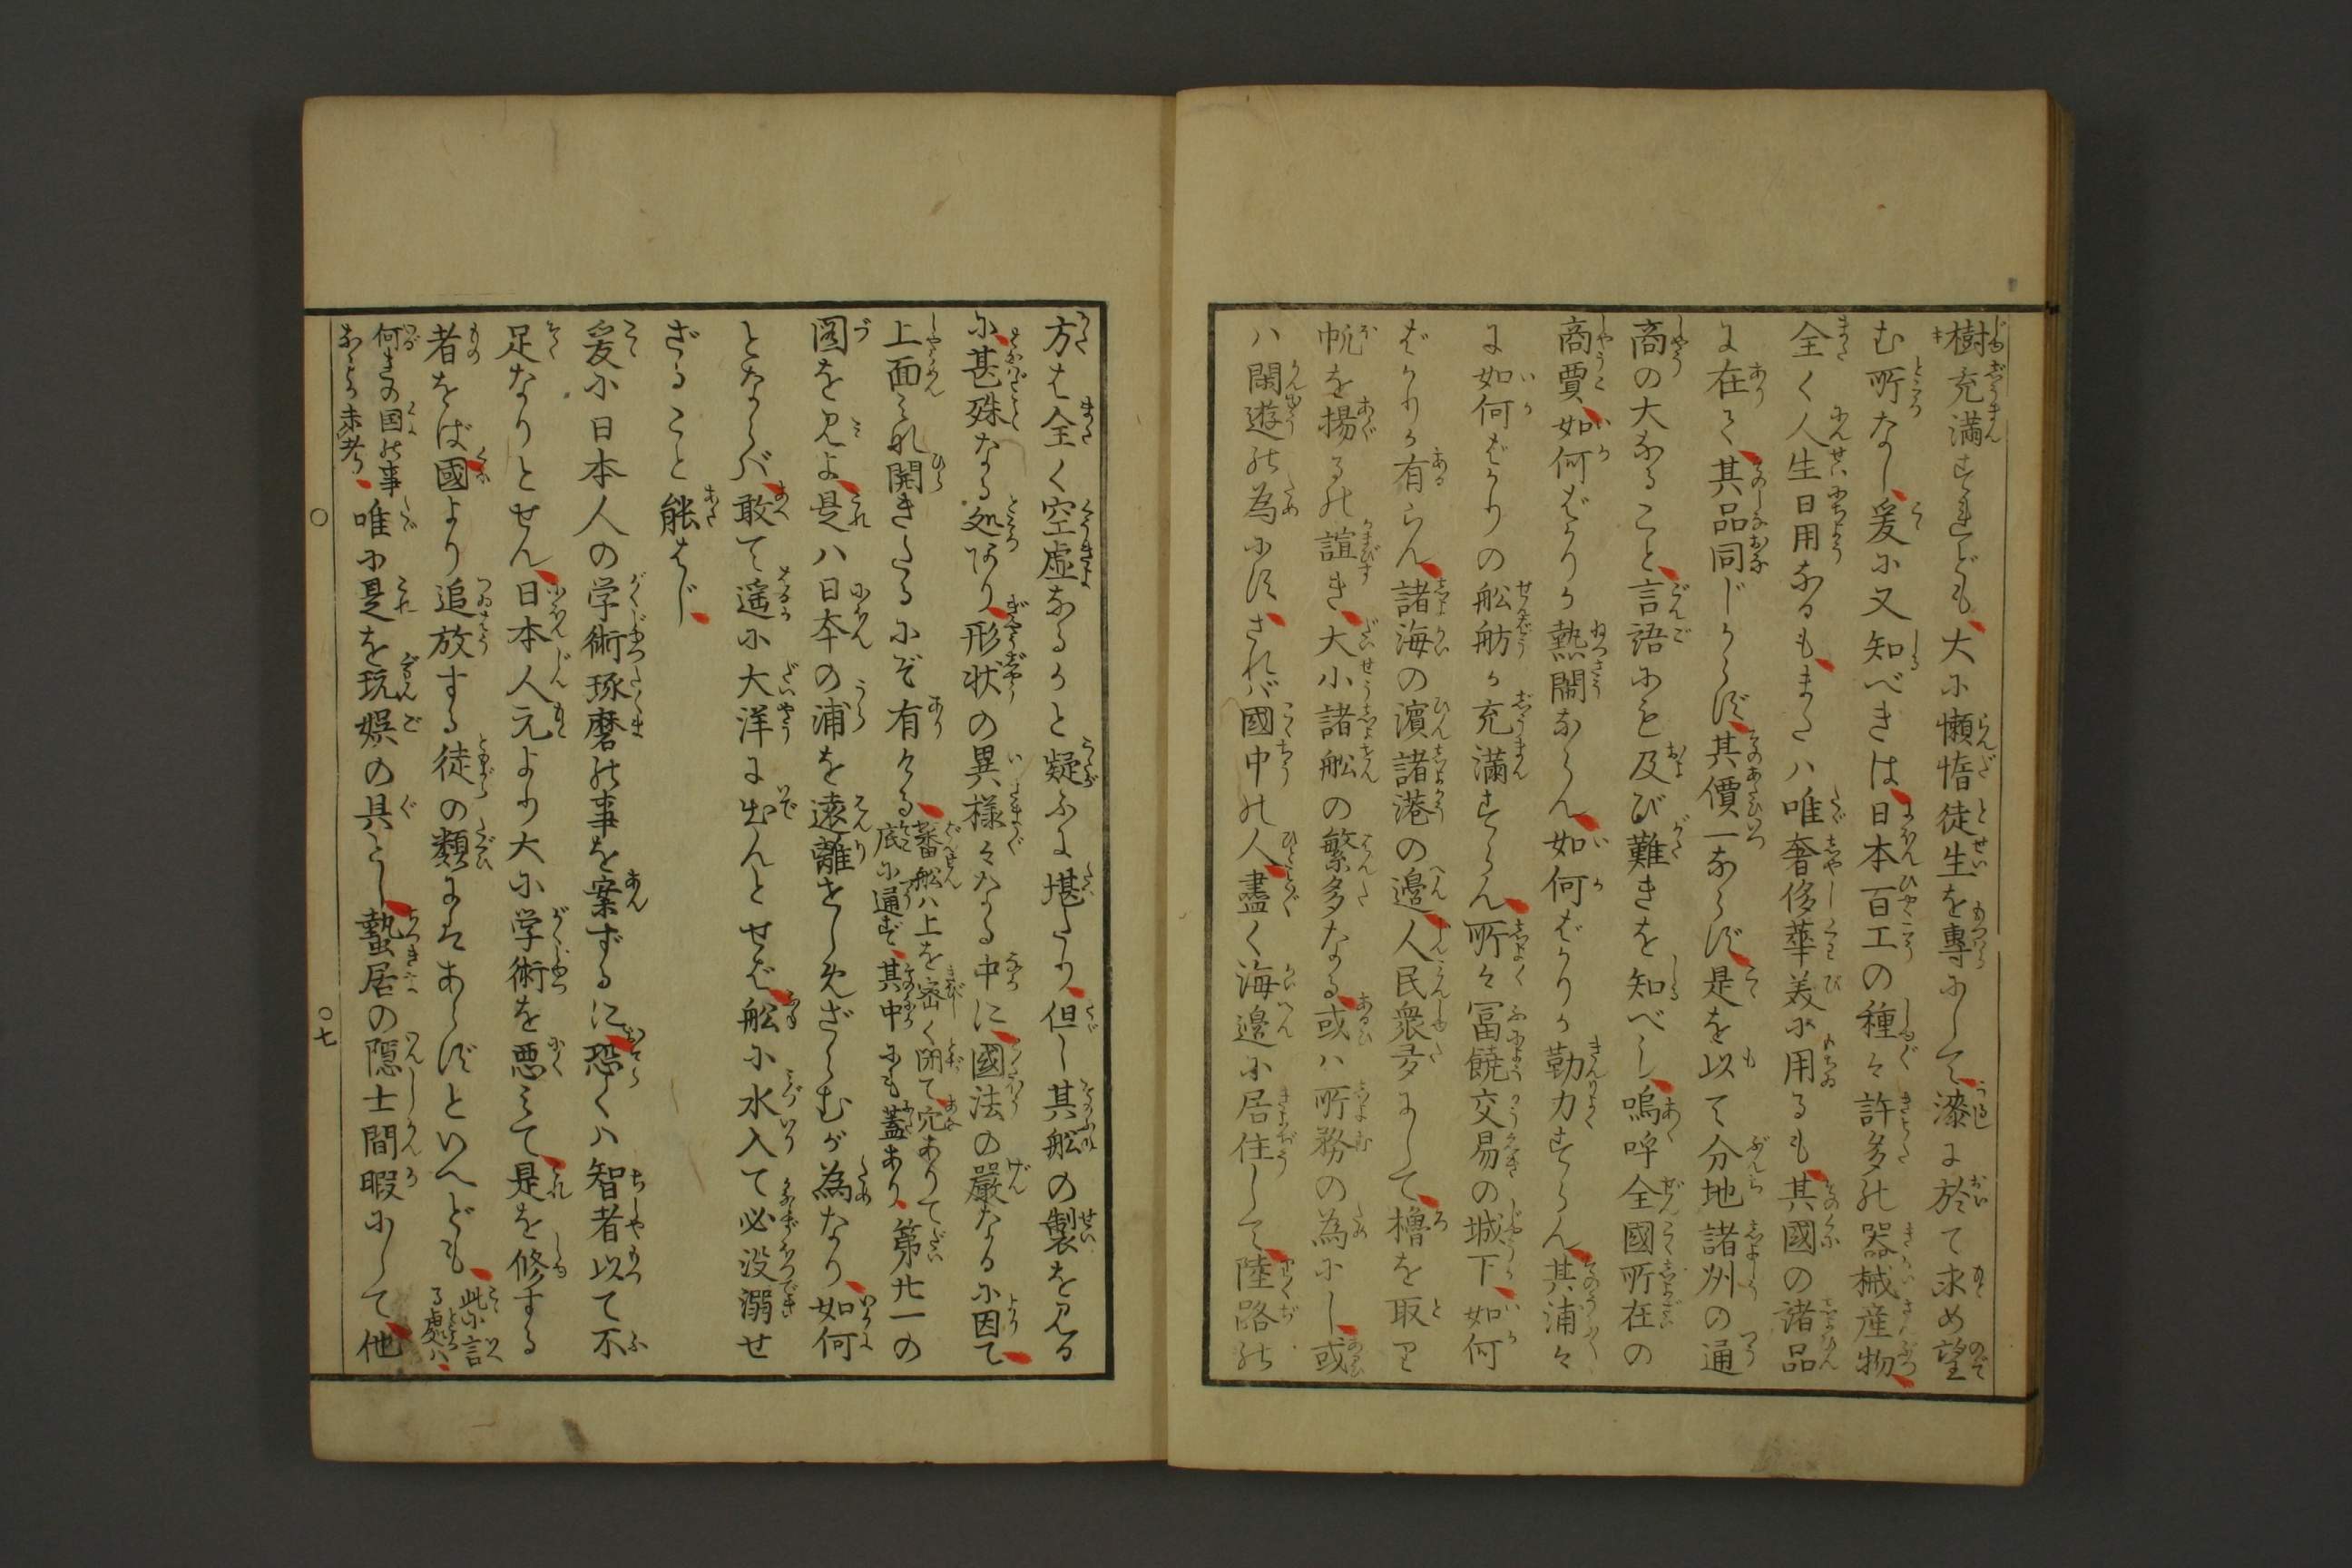 樹充満すれども、大に懶惰徒生を専にして、漆に於て求め望
む所なし、爰に又知べきは、日本百工の種々許多の器械産物、
全く人生日用なるも、または唯奢侈華美に用るも、其國の諸品
に在て、其品同じからず、其價一ならず、是を以て分地諸州の通
商の大なること、言語にも及び難きを知べし、嗚呼全國所在の
商賈、如何ばかりか熱閙ならん、如何ばかりか勤力すらん、其浦々
に如何ばかりの舩舫か充満すらん、所々冨饒交易の城下、如何
ばかりか有らん、諸海の濱諸港の邊、人民衆多にして、櫓を取り
帆を揚るの諠き、大小諸舩の繁多なる、或ハ所務の為にし、或
ハ閑遊の為にす、されバ國中の人、盡く海邊に居住して、陸路の
方は全く空虚なるかと疑ふに堪たり、但し其舩の製を見る
に、甚殊なる処あり、形状の異様々なる中に、國法の嚴なるに因て、
上面みな開きたるにぞ有ける、蕃舩ハ上を密く閉て、穴ありて
底に通ず、其中にも蓋あり、第廿一の
圖を見よ、是ハ日本の浦を遠離をしめざらむが為なり、如何
とならバ、敢て遥に大洋に出んとせば、舩に水入て必没溺せ
ざること能はじ、
爰に日本人の学術琢磨の事を案ずるに、恐くハ智者以て不
足なりとせん、日本人元より大に学術を悪みて、是を修する
者をば國より追放する徒の類にはあらずといへども、此に言
る處ハ、
何れの国の事
なるか未考、唯に是を玩娯の具とし、蟄居の隠士間暇にして、他
〇
〇七